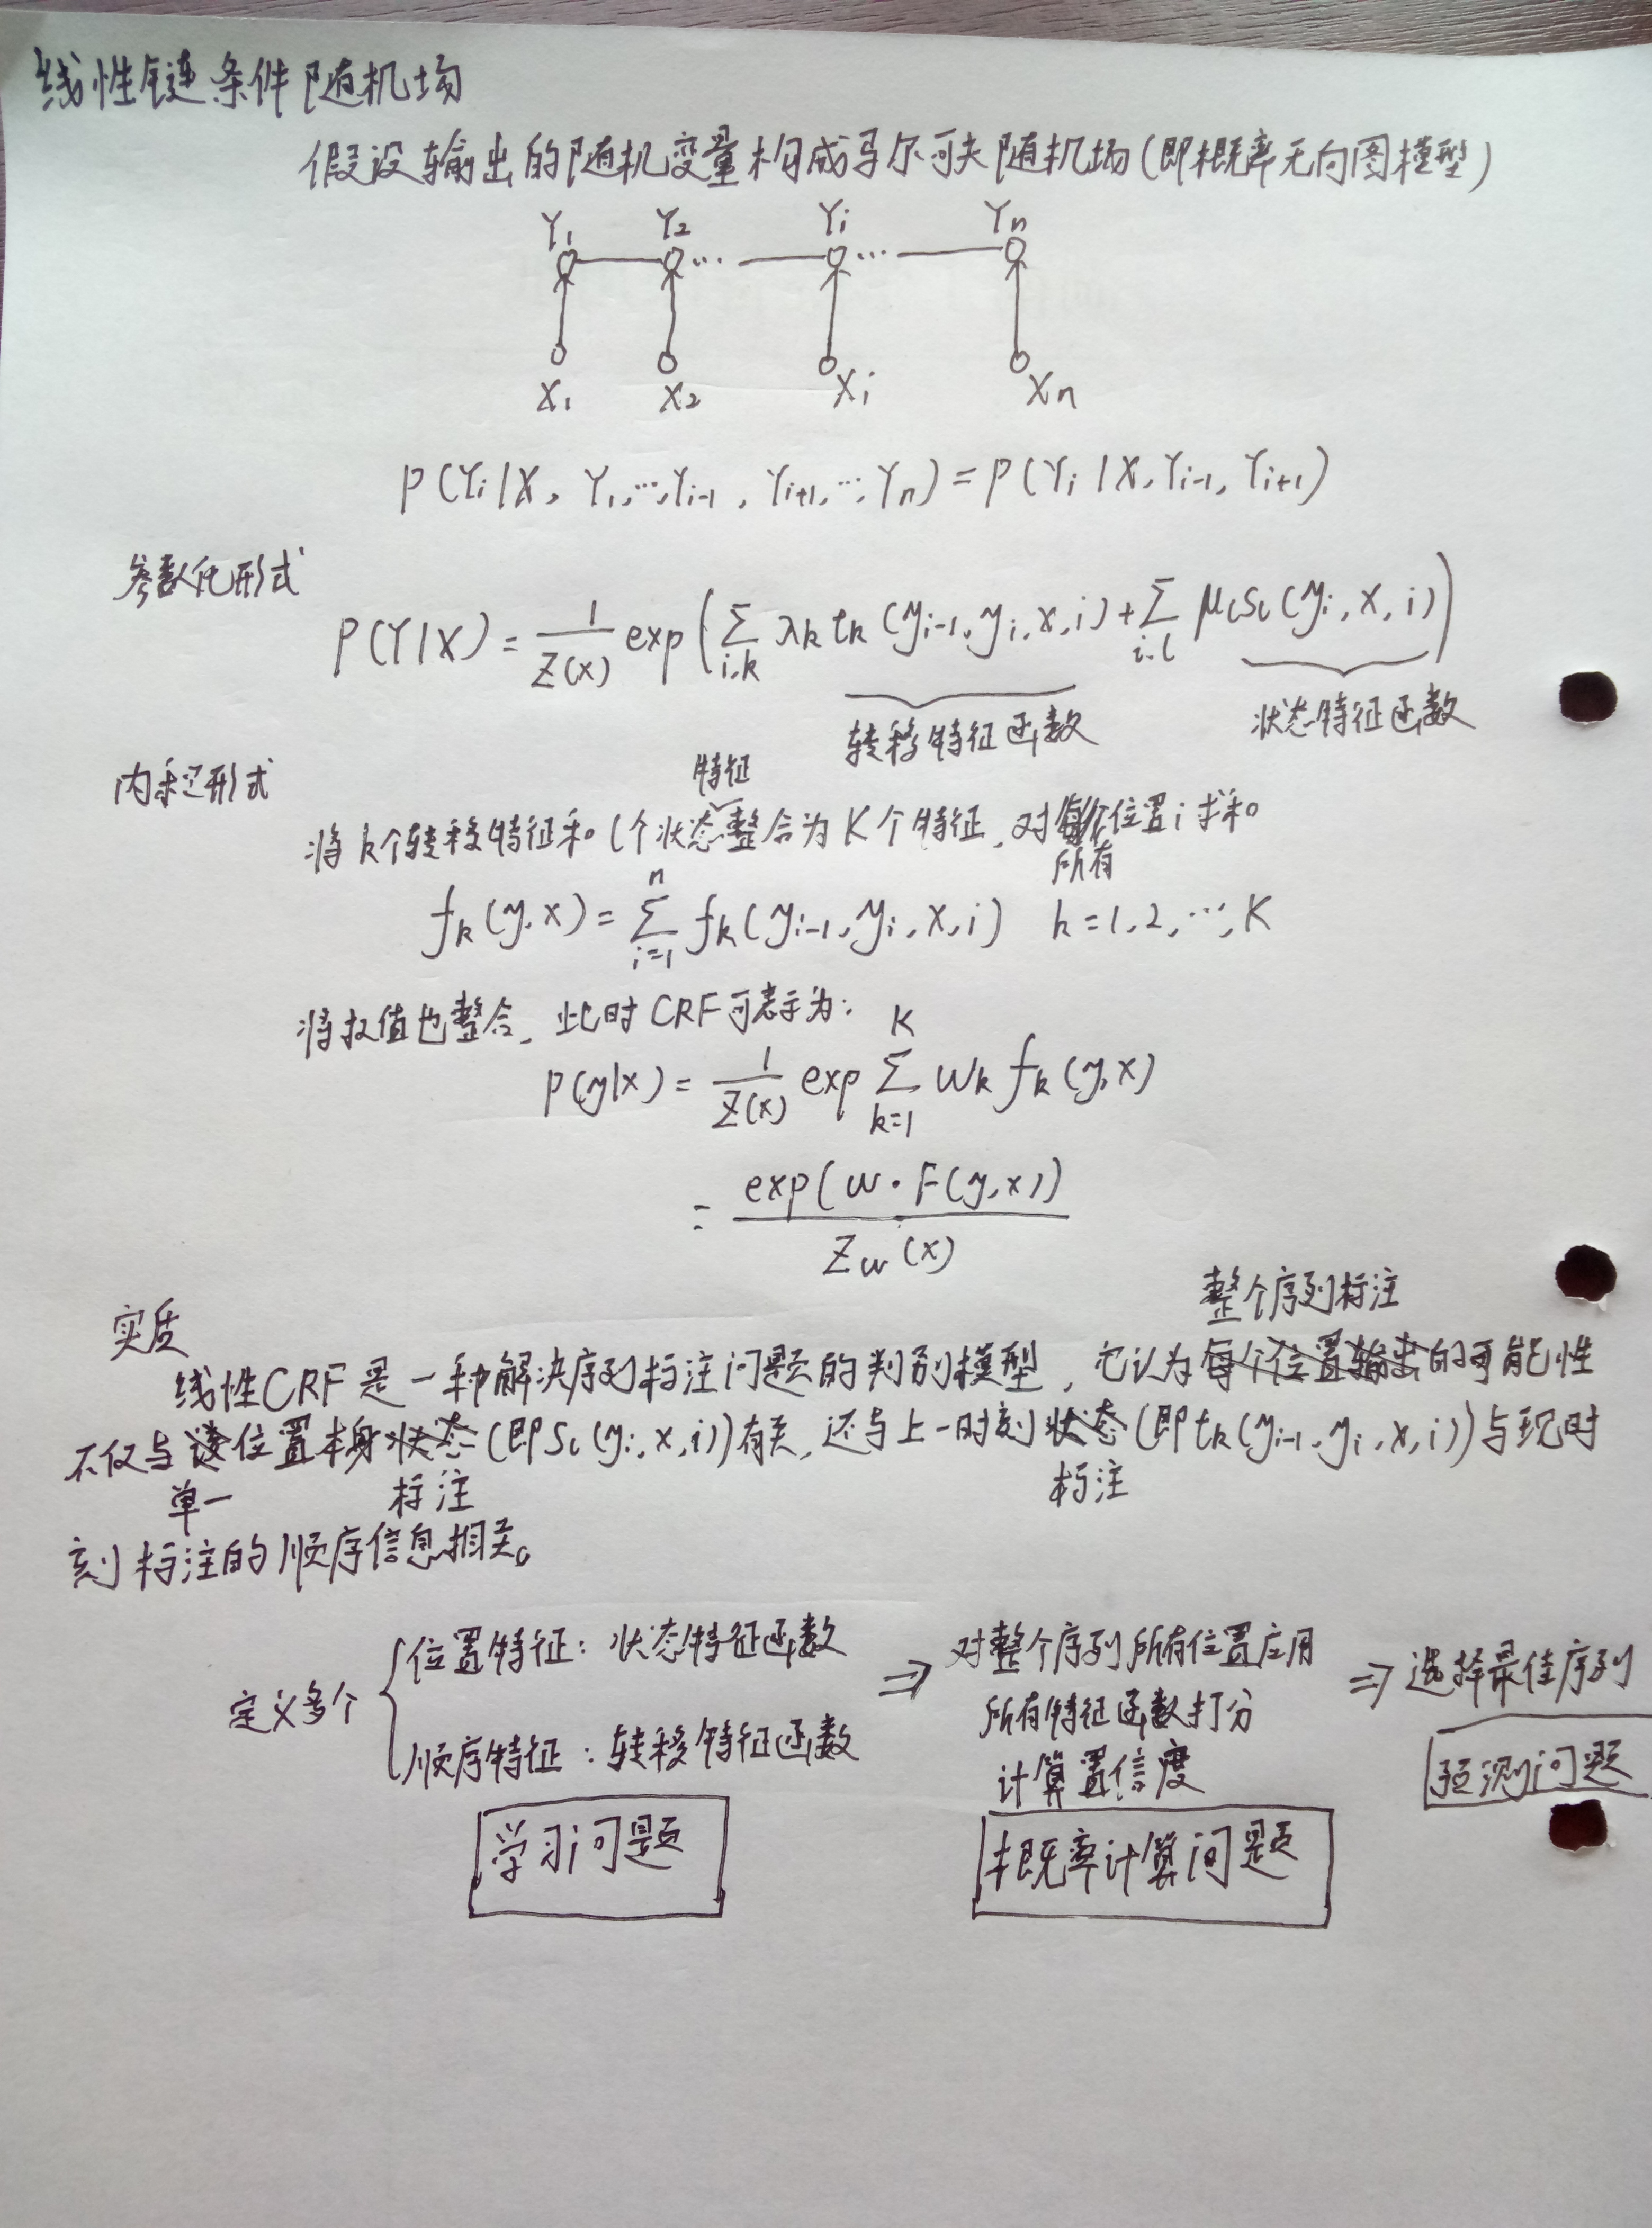 线性链条件随机场
假设输出的随机变量构成马尔可夫随机场(即概率无向图模型)
Y₁ Y₂ ... Yi ... Yn
X₁ X₂ Xi Xn
P(Yi|X, Y₁,…,Yi-1, Yi+1,…,Yn) = P(Yi|X, Yi-1, Yi+1)
参数化形式
P(Y|X) = 1/Z(x) exp(∑i,k λk tk(yi-1, yi, x, i) + ∑i,l μl sl(yi, x, i))
转移特征函数 状态特征函数
内积形式
特征
将k个转移特征和l个状态整合为K个特征,对位置i求和
所有
fk(y,x) = ∑i=1^n fk(yi-1, yi, x, i) k=1,2,…,K
将权值也整合,此时CRF可表示为:
P(y|x) = 1/Z(x) exp ∑k=1^K wk fk(y,x)
= exp(w·F(y,x)) / Zw(x)
实质
整个序列标注
线性CRF是一种解决序列标注问题的判别模型,它认为每个位置输出的可能性
不仅与该位置本身状态(即sl(yi,x,i))有关,还与上一时刻状态(即tk(yi-1,yi,x,i))与现时
单一 标注 标注
刻标注的顺序信息相关。
定义多个
位置特征:状态特征函数
顺序特征:转移特征函数
学习问题
⇒ 对整个序列所有位置应用
所有特征函数打分
计算置信度
概率计算问题
⇒ 选择最佳序列
预测问题